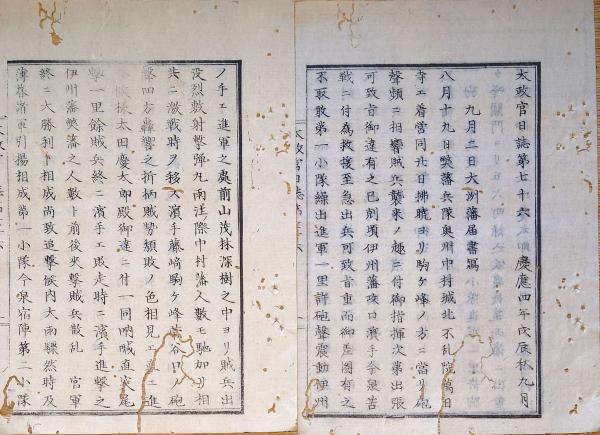 太政官日誌第七十六 慶應四年戊辰秋九月
九月二日大洲藩届書寫
八月十九日弊藩兵隊奥州中村城北不乱院萬日
寺ニ着営同廿日拂曉ヨリ駒ケ峰ノ方ニ當リ砲
聲頻ニ相響賊兵襲来ノ趣ニ付御指揮次第出張
可致旨御達有之已剋頃伊州藩攻口濱手今泉苦
戰ニ付為救援至急出兵可致旨重而御差圖有之
不取敢第一小隊繰出進軍一里許砲聲震動伊州
太政官日誌第
ノ手ニ進軍之處前山茂林深樹之中ヨリ賊兵出
没烈敷射撃彈丸雨注際中村藩人數モ馳加リ相
共ニ激戰時ヲ移ス濱手藤崎駒ケ峰 谷口ノ砲
聲四方轟響之折柄賊勢頽敗ノ色相見 直ニ進
候様太田慶太郎殿御達ニ付一同吶喊直突尾
撃一里餘賊兵終ニ濱手ニ敗走時ニ濱手進撃之
伊州藩弊藩之人數ト前後夾撃賊兵散乱 官軍
終ニ大勝利ト相成尚致追撃候内大雨驟然時及
薄暮諸軍引揚相成第一小隊今泉宿陣第二小隊